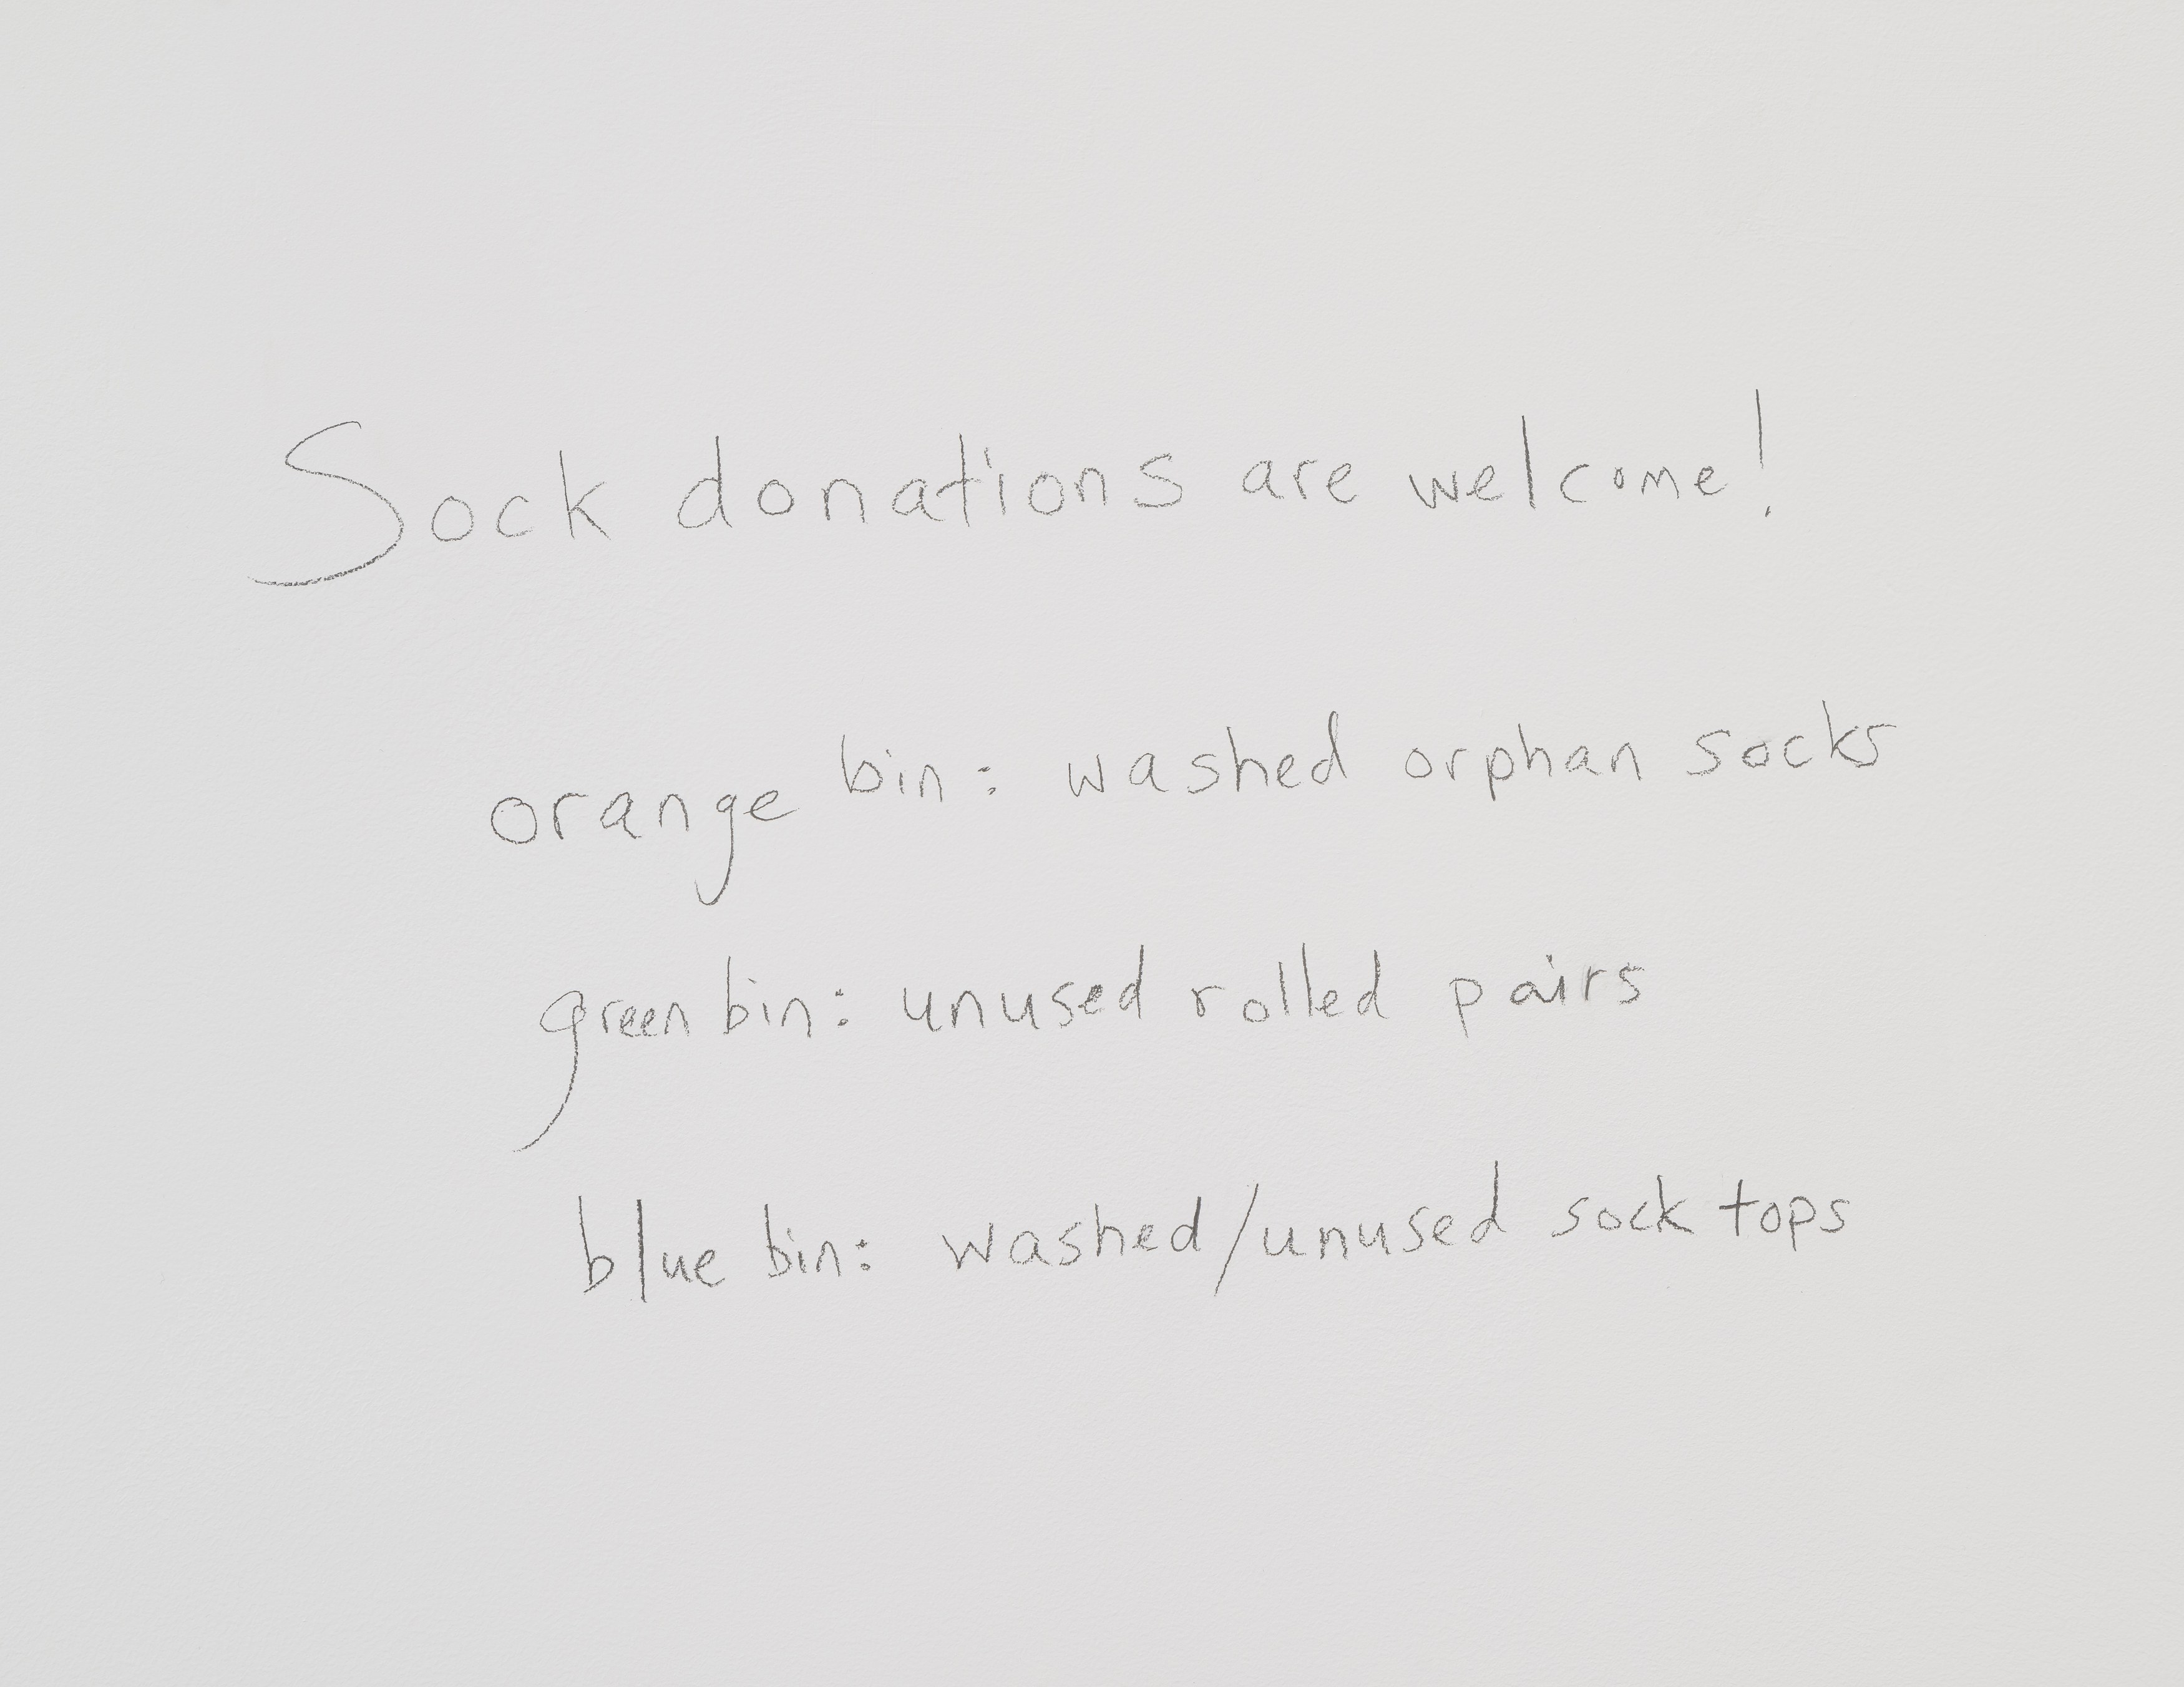 Sock donations are welcome!
orange bin: washed orphan socks
green bin: unused rolled pairs
blue bin: washed/unused sock tops